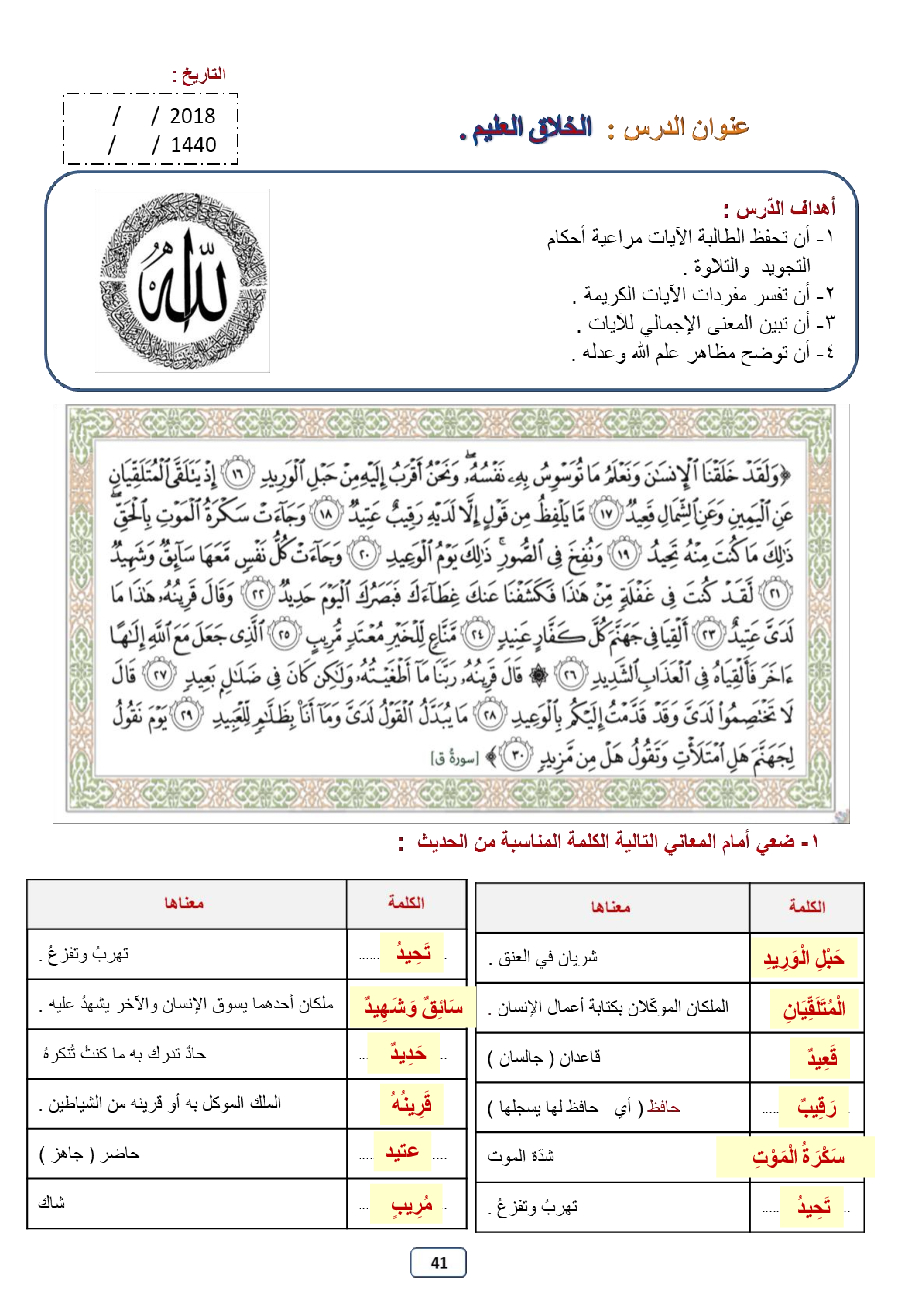 التاريخ :
2018 /    /
1440 /    /
عنوان الدرس : الخلاق العليم .
أهداف الدّرس :
١- أن تحفظ الطالبة الآيات مراعية أحكام
التجويد والتلاوة .
٢- أن تفسر مفردات الآيات الكريمة .
٣- أن تبين المعنى الإجمالي للايات .
٤- أن توضح مظاهر علم الله وعدله .
الله
﴿وَلَقَدْ خَلَقْنَا ٱلْإِنسَٰنَ وَنَعْلَمُ مَا تُوَسْوِسُ بِهِۦ نَفْسُهُۥ ۖ وَنَحْنُ أَقْرَبُ إِلَيْهِ مِنْ حَبْلِ ٱلْوَرِيدِ ١٦ إِذْ يَتَلَقَّى ٱلْمُتَلَقِّيَانِ
عَنِ ٱلْيَمِينِ وَعَنِ ٱلشِّمَالِ قَعِيدٌ ١٧ مَّا يَلْفِظُ مِن قَوْلٍ إِلَّا لَدَيْهِ رَقِيبٌ عَتِيدٌ ١٨ وَجَآءَتْ سَكْرَةُ ٱلْمَوْتِ بِٱلْحَقِّ ۖ
ذَٰلِكَ مَا كُنتَ مِنْهُ تَحِيدُ ١٩ وَنُفِخَ فِى ٱلصُّورِ ۚ ذَٰلِكَ يَوْمُ ٱلْوَعِيدِ ٢٠ وَجَآءَتْ كُلُّ نَفْسٍ مَّعَهَا سَآئِقٌ وَشَهِيدٌ
٢١ لَّقَدْ كُنتَ فِى غَفْلَةٍ مِّنْ هَٰذَا فَكَشَفْنَا عَنكَ غِطَآءَكَ فَبَصَرُكَ ٱلْيَوْمَ حَدِيدٌ ٢٢ وَقَالَ قَرِينُهُۥ هَٰذَا مَا
لَدَىَّ عَتِيدٌ ٢٣ أَلْقِيَا فِى جَهَنَّمَ كُلَّ كَفَّارٍ عَنِيدٍ ٢٤ مَّنَّاعٍ لِّلْخَيْرِ مُعْتَدٍ مُّرِيبٍ ٢٥ ٱلَّذِى جَعَلَ مَعَ ٱللَّهِ إِلَٰهًا
ءَاخَرَ فَأَلْقِيَاهُ فِى ٱلْعَذَابِ ٱلشَّدِيدِ ٢٦ ۞ قَالَ قَرِينُهُۥ رَبَّنَا مَآ أَطْغَيْتُهُۥ وَلَٰكِن كَانَ فِى ضَلَٰلٍۭ بَعِيدٍ ٢٧ قَالَ
لَا تَخْتَصِمُوا۟ لَدَىَّ وَقَدْ قَدَّمْتُ إِلَيْكُم بِٱلْوَعِيدِ ٢٨ مَا يُبَدَّلُ ٱلْقَوْلُ لَدَىَّ وَمَآ أَنَا۠ بِظَلَّٰمٍ لِّلْعَبِيدِ ٢٩ يَوْمَ نَقُولُ
لِجَهَنَّمَ هَلِ ٱمْتَلَأْتِ وَتَقُولُ هَلْ مِن مَّزِيدٍ ٣٠﴾ [سورة ق]
١- ضعي أمام المعاني التالية الكلمة المناسبة من الحديث :
الكلمة معناها
حَبْلِ الْوَرِيدِ شريان في العنق .
الْمُتَلَقِّيَانِ الملكان الموكّلان بكتابة أعمال الإنسان .
قَعِيدٌ قاعدان ( جالسان )
. رَقِيبٌ ..... حافظ ( أي حافظ لها يسجلها )
سَكْرَةُ الْمَوْتِ شدّة الموت
.. تَحِيدُ ..... تهربُ وتفزعُ .
الكلمة معناها
. تَحِيدُ ...... تهربُ وتفزعُ .
سَائِقٌ وَشَهِيدٌ ملكان أحدهما يسوق الإنسان والآخر يشهدُ عليه .
.. حَدِيدٌ ... حادٌ تدرك به ما كنتَ تُنكرهُ
قَرِينُهُ الملك الموكل به أو قرينه من الشياطين .
.... عتيد .... حاضر ( جاهز )
. مُرِيبٍ ... شاك
41